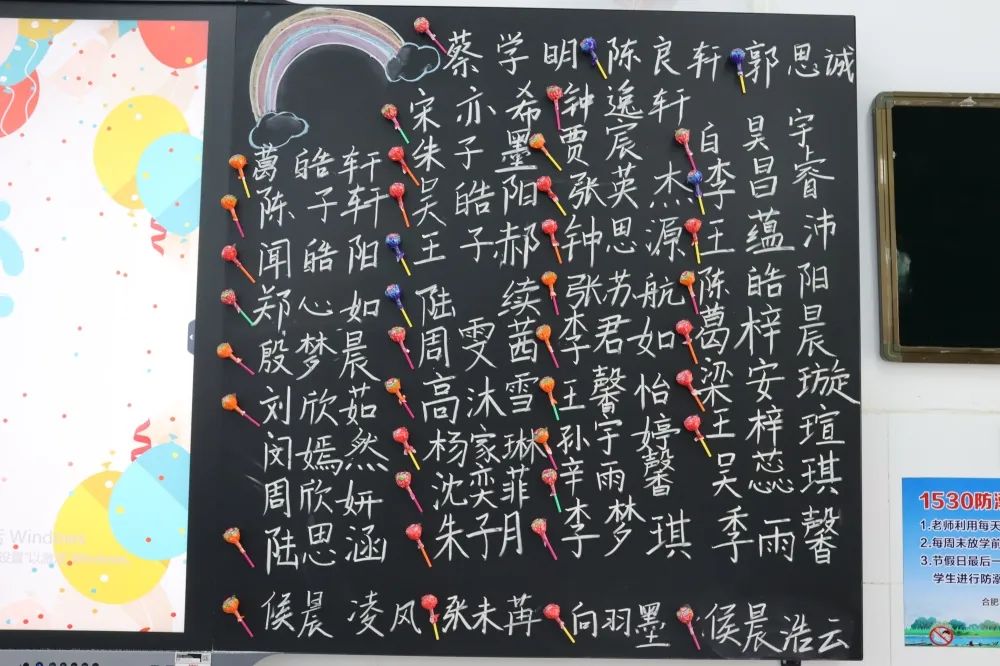 蔡学明 陈良轩 郭思诚
宋亦希 钟逸轩
葛皓轩 朱子墨 贾宸 白昊宇
陈子轩 吴皓阳 张英杰 李昌睿
闻皓阳 王子郝 钟思源 王蕴沛
郑心如 陆续 张苏航 陈皓阳
殷梦晨 周雯茜 李君如 葛梓晨
刘欣茹 高沐雪 王馨怡 梁安璇
闵嫣然 杨家琳 孙宇婷 王梓瑄
周欣妍 沈奕菲 辛雨馨 吴蕊琪
陆思涵 朱子月 李梦琪 季雨馨
侯晨凌风 张未苒 向羽墨 侯晨浩云
Windows
1530防
1.老师利用每天
2.每周末放学前
3.节假日最后一
学生进行防溺
合肥